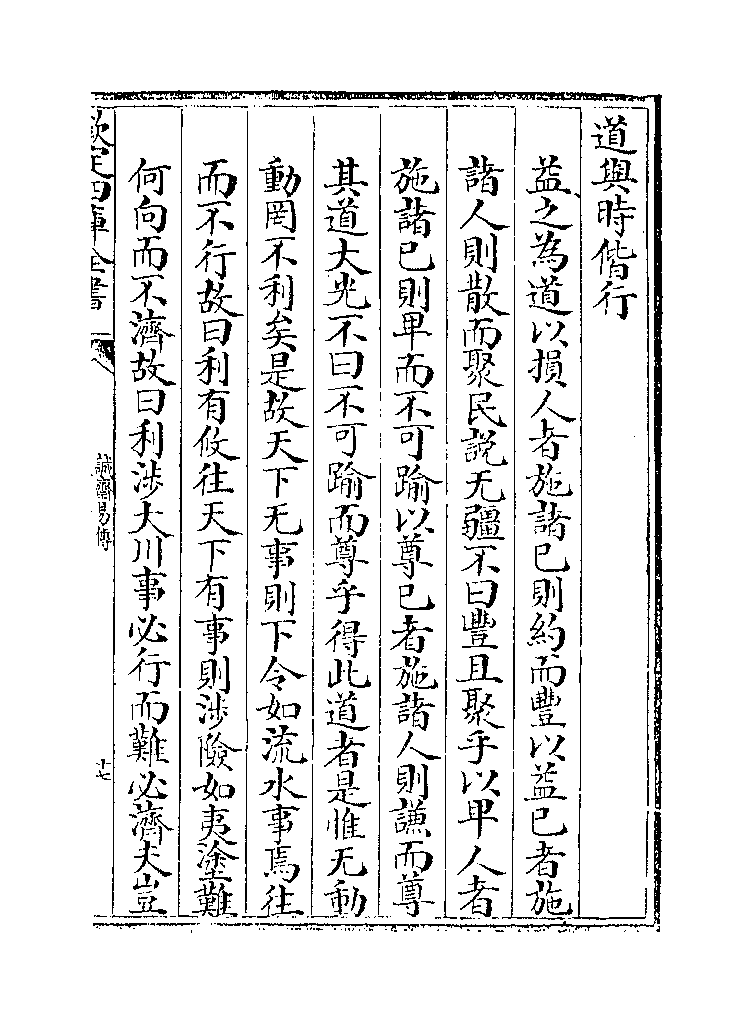 道與時偕行
益之為道以損人者施諸已則約而豐以益已者施
諸人則散而聚民説无疆不曰豐且聚乎以卑人者
施諸已則卑而不可踰以尊已者施諸人則謙而尊
其道大光不曰不可踰而尊乎得此道者是惟无動
動罔不利矣是故天下无事則下令如流水事焉往
而不行故曰利有攸往天下有事則涉險如夷塗難
何向而不濟故曰利涉大川事必行而難必濟夫豈
欽定四庫全書
誠齋易傳
十七